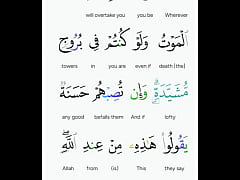 will overtake you you be Wherever
ٱلْمَوْتُ وَلَوْ كُنتُمْ فِى بُرُوجٍ
towers in you are even if death [the]
مُّشَيَّدَةٍ ۗ وَإِن تُصِبْهُمْ حَسَنَةٌ
any good befalls them And if lofty
يَقُولُوا۟ هَـٰذِهِۦ مِنْ عِندِ ٱللَّهِ ۖ
Allah from (is) This they say